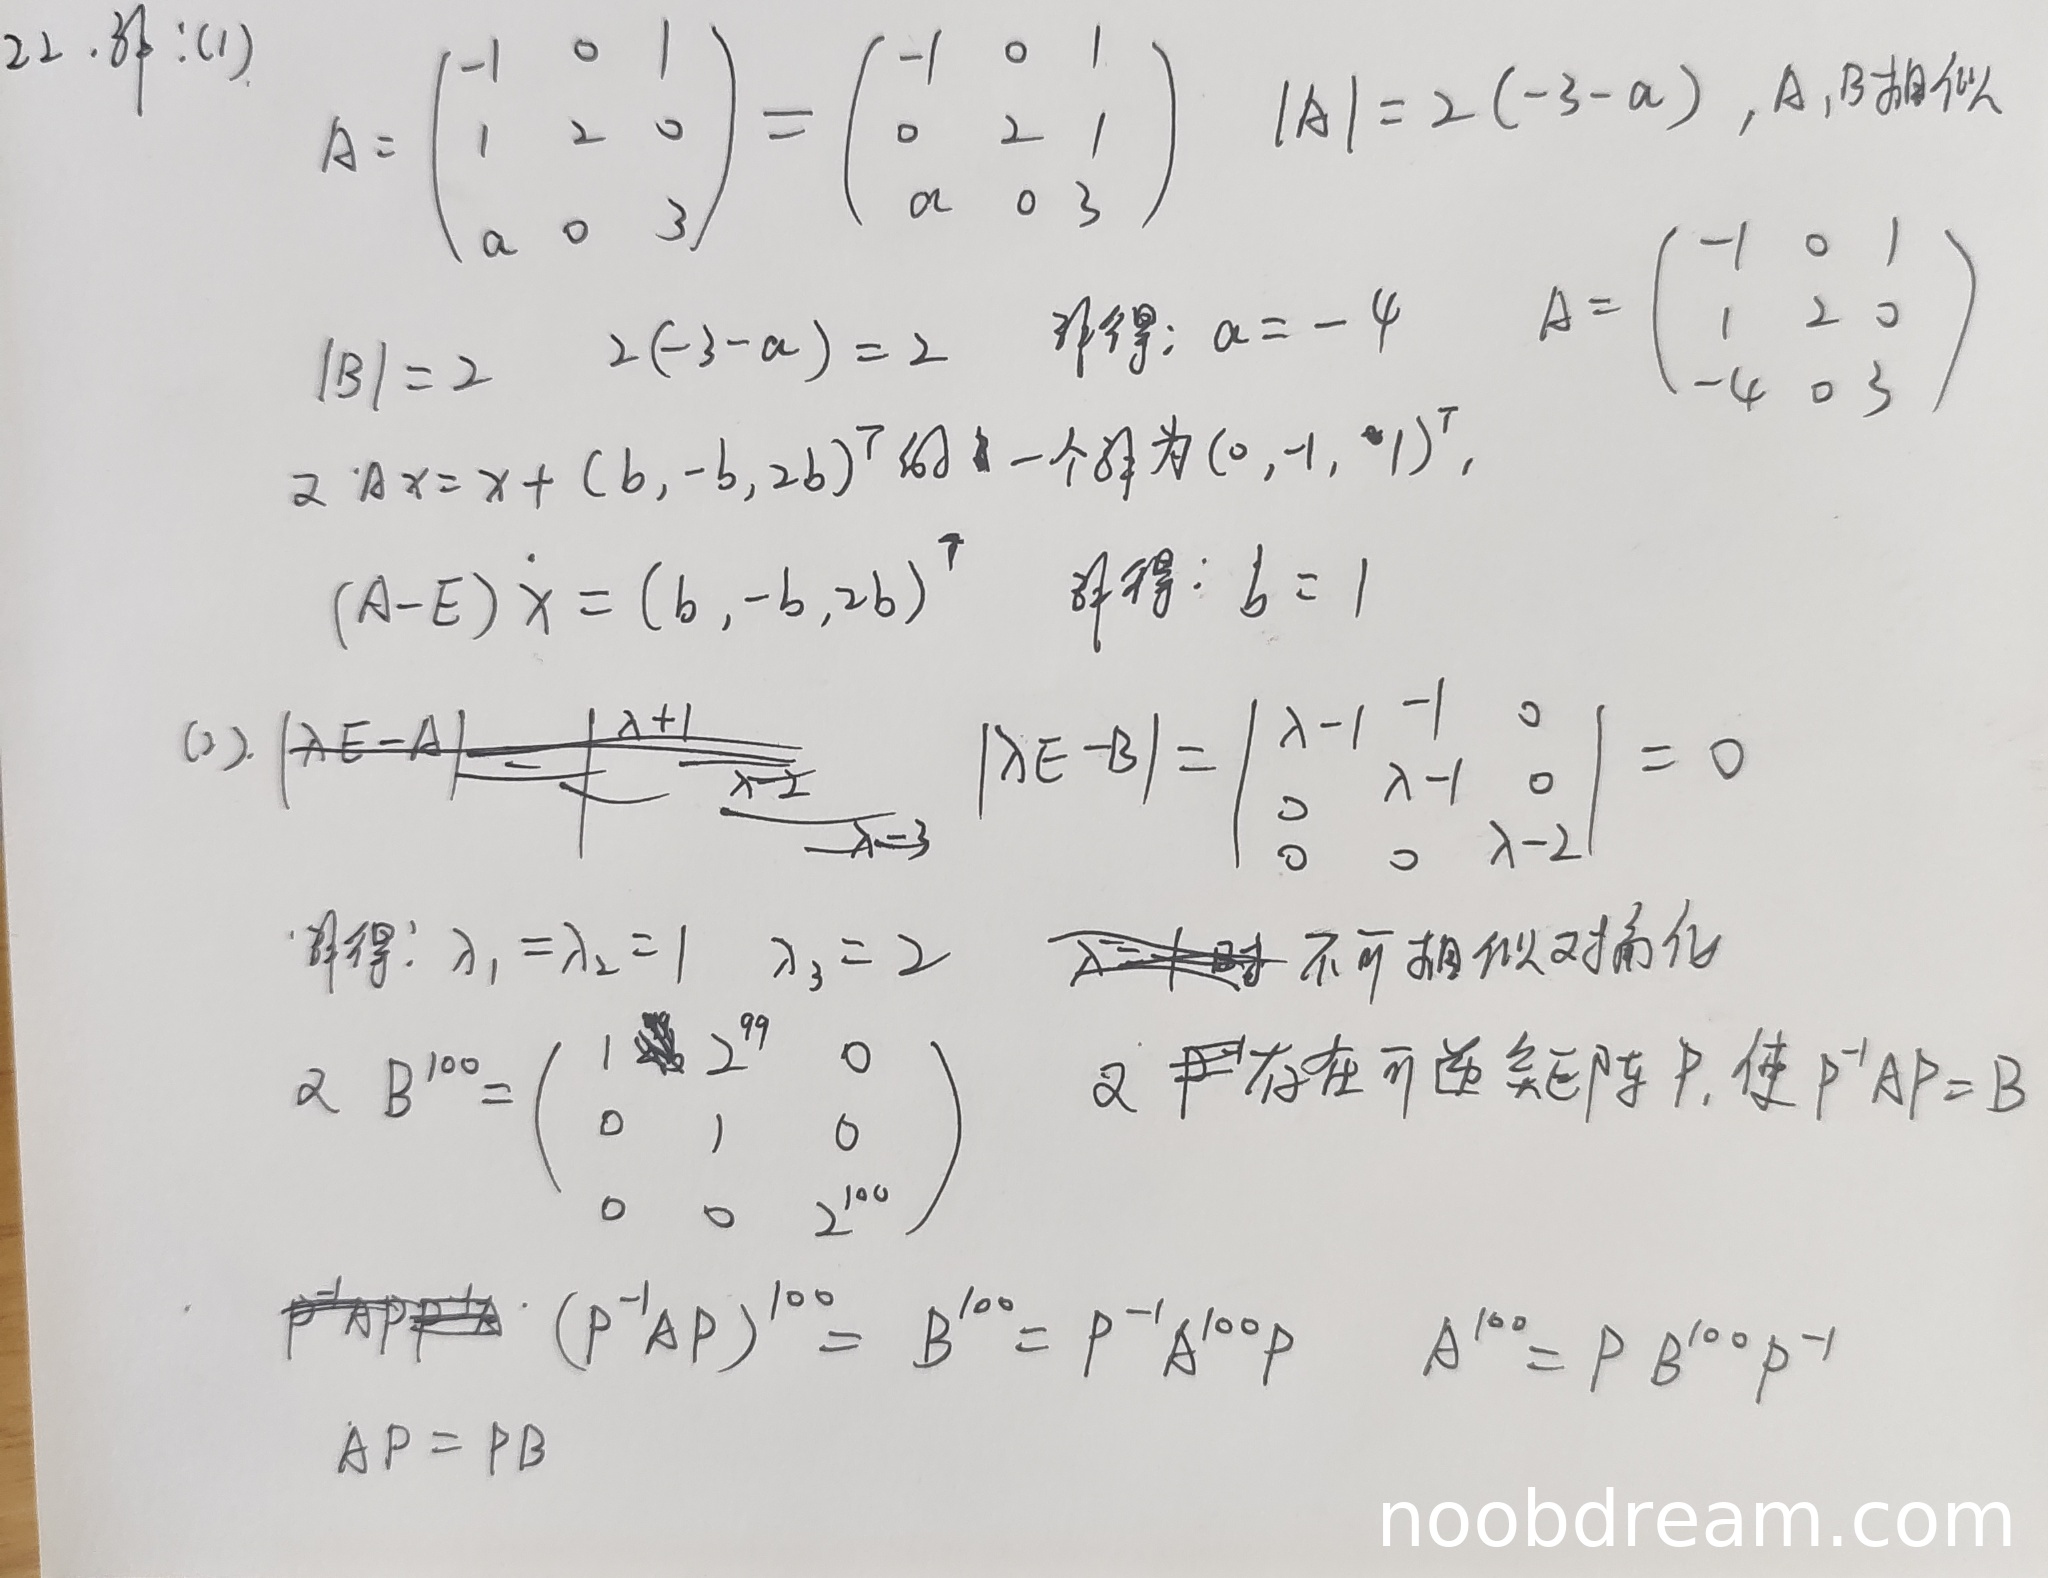 22.解:(1) A = ( -1 0 1 ; 1 2 0 ; a 0 3 ) = ( -1 0 1 ; 0 2 1 ; a 0 3 ) |A| = 2(-3-a) , A,B相似
|B| = 2 2(-3-a) = 2 解得: a = -4 A = ( -1 0 1 ; 1 2 0 ; -4 0 3 )
又 Ax = x + (b, -b, 2b)ᵀ 的一个解为 (0, -1, 1)ᵀ,
(A-E) x = (b, -b, 2b)ᵀ 解得: b = 1
(2). |λE-B| = | λ-1 -1 0 ; 0 λ-1 0 ; 0 0 λ-2 | = 0
解得: λ₁ = λ₂ = 1 λ₃ = 2 不可相似对角化
又 B¹⁰⁰ = ( 1 2⁹⁹ 0 ; 0 1 0 ; 0 0 2¹⁰⁰ ) 又 存在可逆矩阵P, 使 P⁻¹AP = B
(P⁻¹AP)¹⁰⁰ = B¹⁰⁰ = P⁻¹A¹⁰⁰P A¹⁰⁰ = P B¹⁰⁰ P⁻¹
AP = PB
noobdream.com